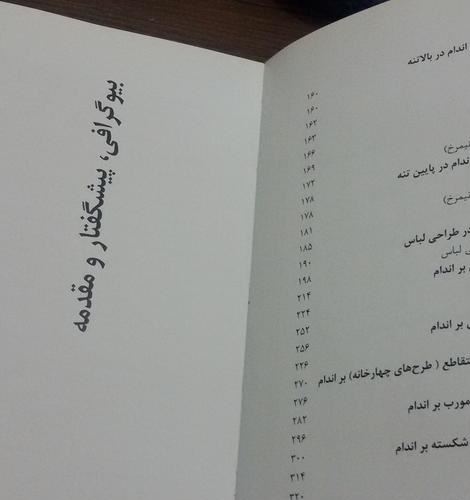 بیوگرافی، پیشگفتار و مقدمه
اندام در بالاتنه
۱۶۰
۱۶۰
۱۶۲
۱۶۳
نیمرخ)
۱۶۶
اندام در پایین تنه
۱۶۹
۱۷۲
نیمرخ)
۱۷۸
۱۷۸
در طراحی لباس
۱۸۱
لباس
۱۸۵
بر اندام
۱۹۰
۱۹۸
۲۱۴
۲۲۴
بر اندام
۲۵۲
۲۵۶
متقاطع ( طرح‌های چهارخانه) بر اندام
۲۲۶
۲۷۰
مورب بر اندام
۲۷۶
۲۸۲
شکسته بر اندام
۲۹۶
۳۰۰
۳۱۴
۳۲۰